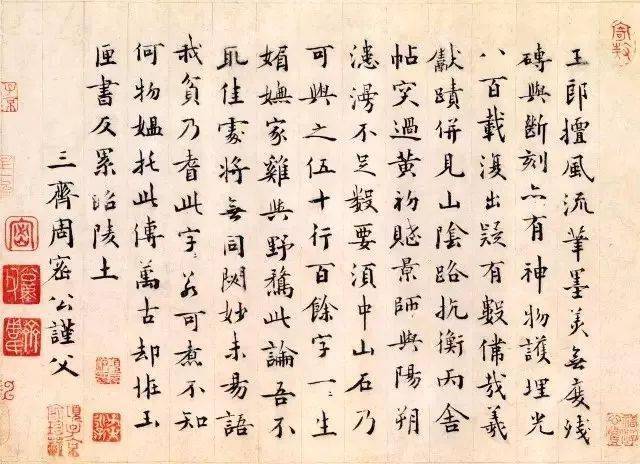 王郎擅風流筆墨美無度殘
磚與斷刻亦有神物護埋光
八百載復出疑有數哉羲
獻蹟併見山陰路抗衡兩舍
帖突過黃初賦景師與陽朔
漶漫不足數要須中山石乃
可與之伍十行百餘字一一生
媚嫵家雞與野鶩此論吾不
取佳處將無同闕妙未易語
我貧乃耆此字若可煮不知
何物媼托此傳萬古却恠玉
匣書反累昭陵土
三齊周密公謹父